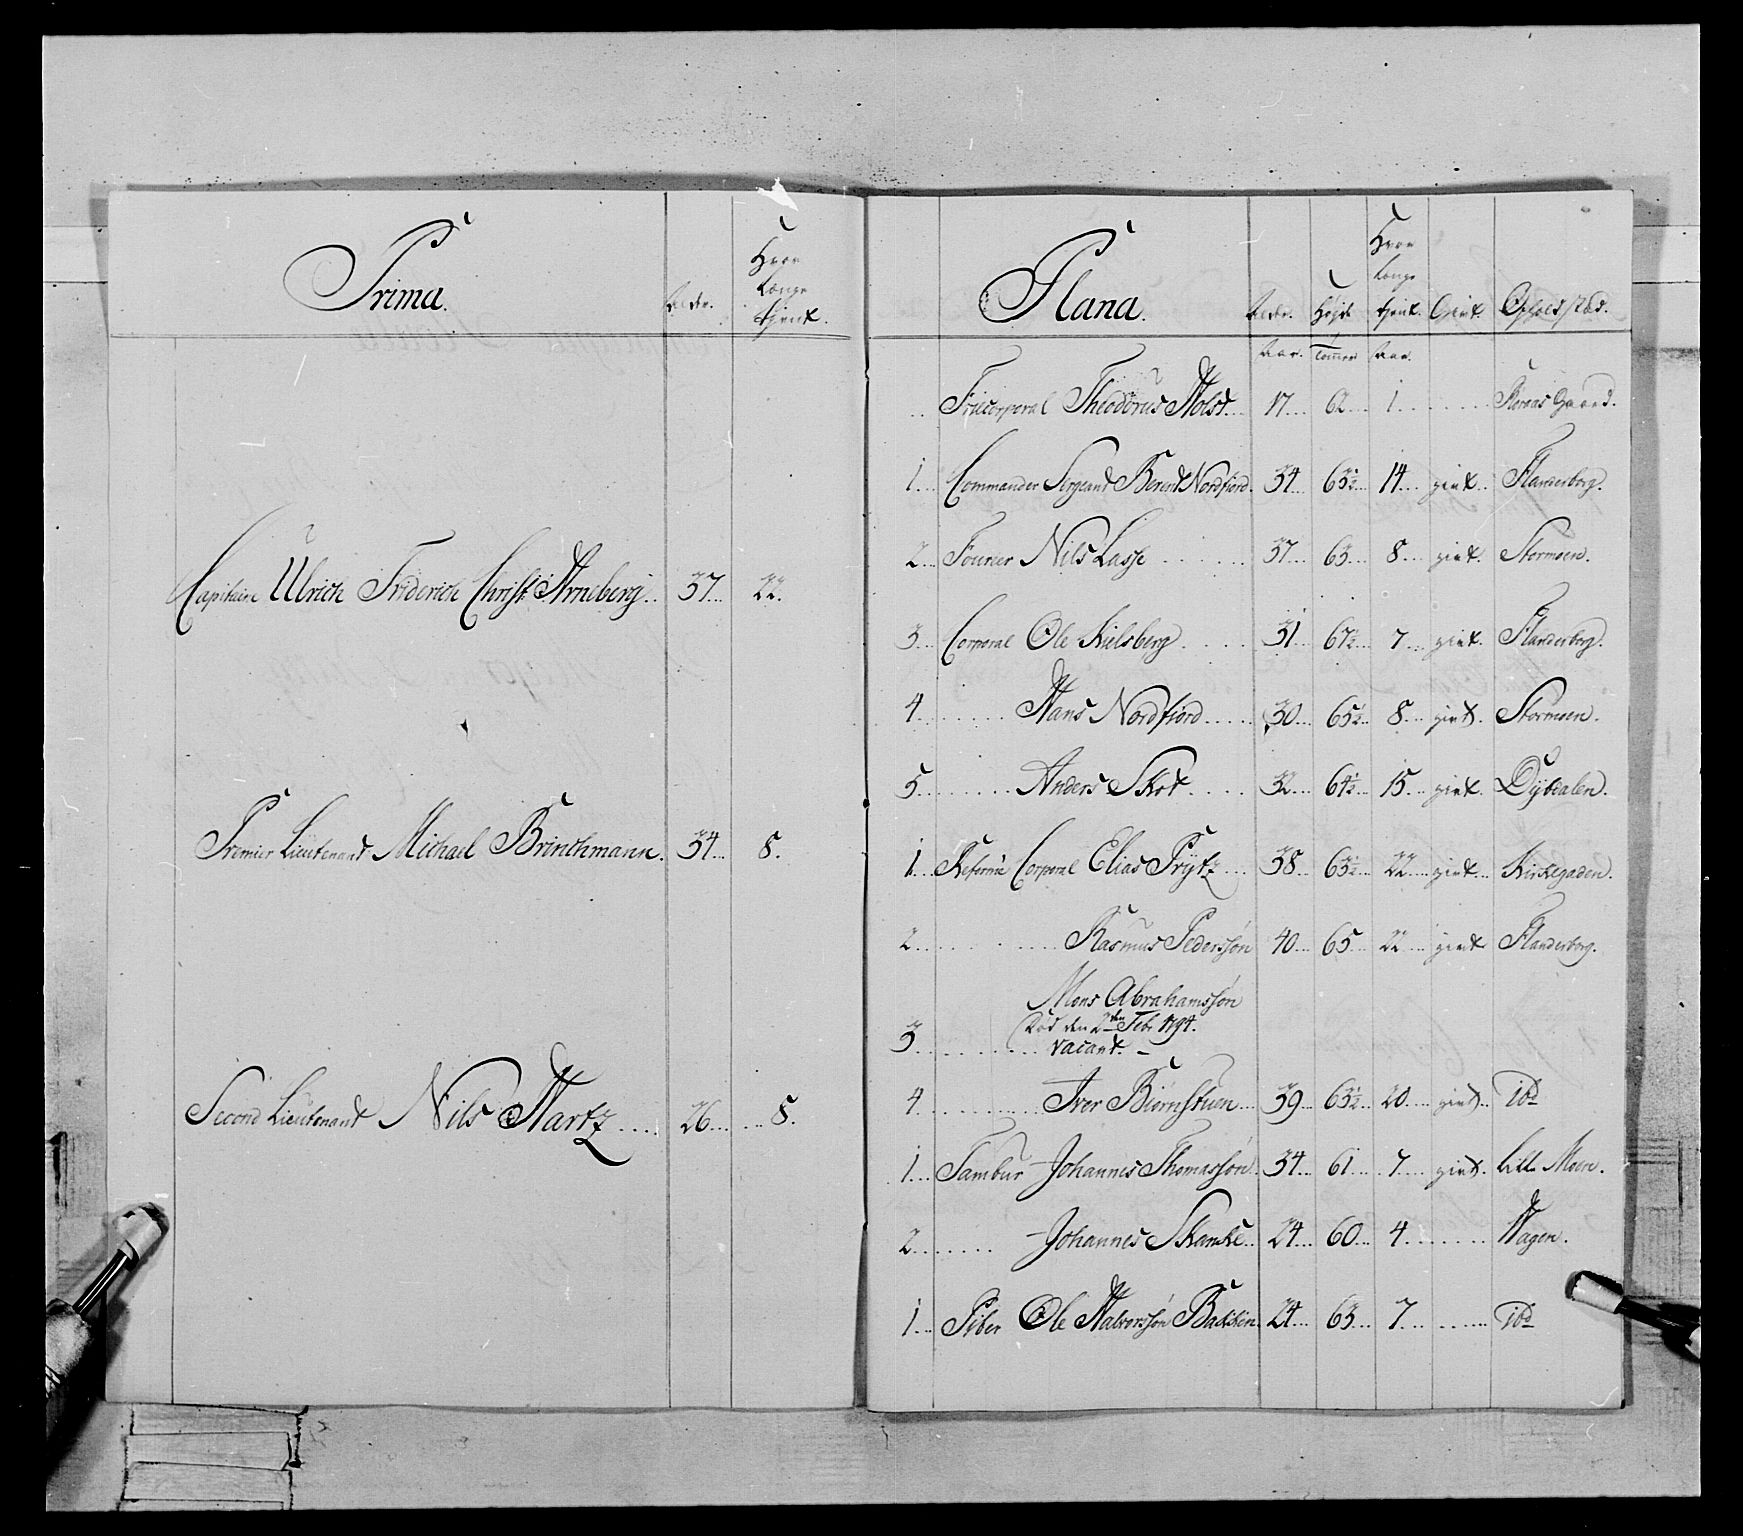 Prima.
Alder.
Hvor
Længe
tjent.
Capitaine Ulrich Friderich Christ: Arneberg.. 37... 22.
Premier Lieutenant Michael Brinchmann. 34... 8.
Second Lieutenant Nils Hartz..... 26... ...8.
Plana.
Alder.
Højde
Hvor
længe
tjent.
Givt.
Opholdsted.
Aar. Tommer Aar.
Fricorporal Theodorus Holst... 17... 62... 1........ Røraas Gaard.
1... Commander Sergeant Berent Nordfiord. 34... 63½.. 14... givt.. Flanderborg.
2... Fourier Nils Lasse...... 37... 63... 8... givt. Stormoen.
3... Corporal Ole Kielsberg..... 31... 67½.. 7... givt. Flanderborg.
4....... Hans Nordfiord..... 30... 65½.. 8... givt. Stormoen.
5....... Anders Skot..... 32... 64½.. 15... givt. Dybdalen.
1... Reformé Corporal Elias Prytz... 38... 63½.. 22... givt... Kirkegaden.
2......... Rasmus Pederssøn 40... 65... 22... givt Flanderborg.
Mons Abrahamssøn
død den 2den Febr 1794.
3......... vacant. –
4......... Iver Biørnstuen... 39... 63½.. 20... givt... ibd
1... Tambur Johannes Thomassøn. 34... 61... 7... givt. Lille Moen.
2....... Johannes Skanke.. 24... 60... 4....... Hagen.
1... Piber Ole Halvorssøn Bakken. 24... 63... 7... ...... ibd